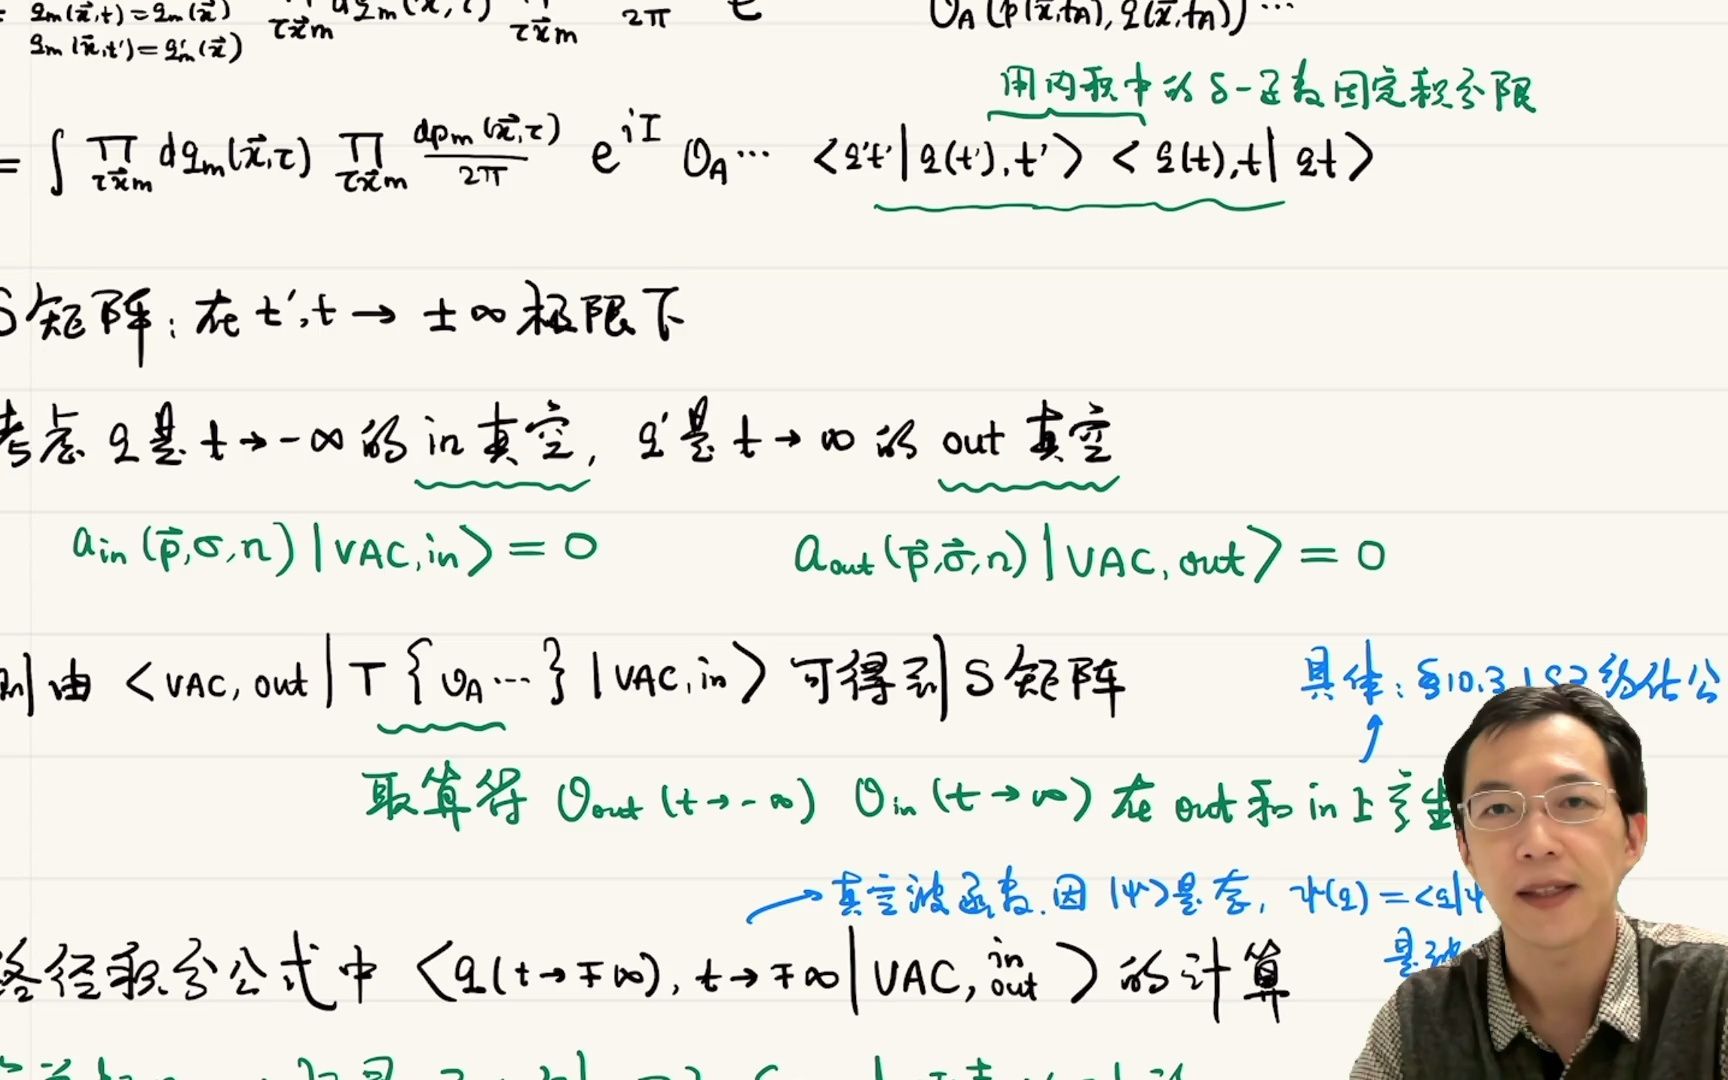 q_m(x⃗,t)=q_m(x⃗)
q_m(x⃗,t')=q'_m(x⃗) τx⃗m τx⃗m 2π e O_A(p(x⃗,t_A), q(x⃗,t_A))…
用内积中的δ-函数固定积分限
= ∫ ∏_{τx⃗m} dq_m(x⃗,τ) ∏_{τx⃗m} dp_m(x⃗,τ)/2π e^{iI} O_A… <q't'|q(t'),t'> <q(t),t|qt>
S矩阵:在t',t→±∞极限下
考虑q是t→-∞的in真空, q'是t→∞的out真空
a_in(p⃗,σ,n)|VAC,in>=0 a_out(p⃗,σ⃗,n)|VAC,out>=0
则由<VAC,out|T{O_A…}|VAC,in>可得到S矩阵 具体:§10.3 LSZ约化公
取算符 O_out(t→-∞) O_in(t→∞)在out和in上产生
→真空波函数.因|ψ>是态, ψ(q)=<q|ψ
是波
路径积分公式中<q(t→∓∞),t→∓∞|VAC,in out>的计算